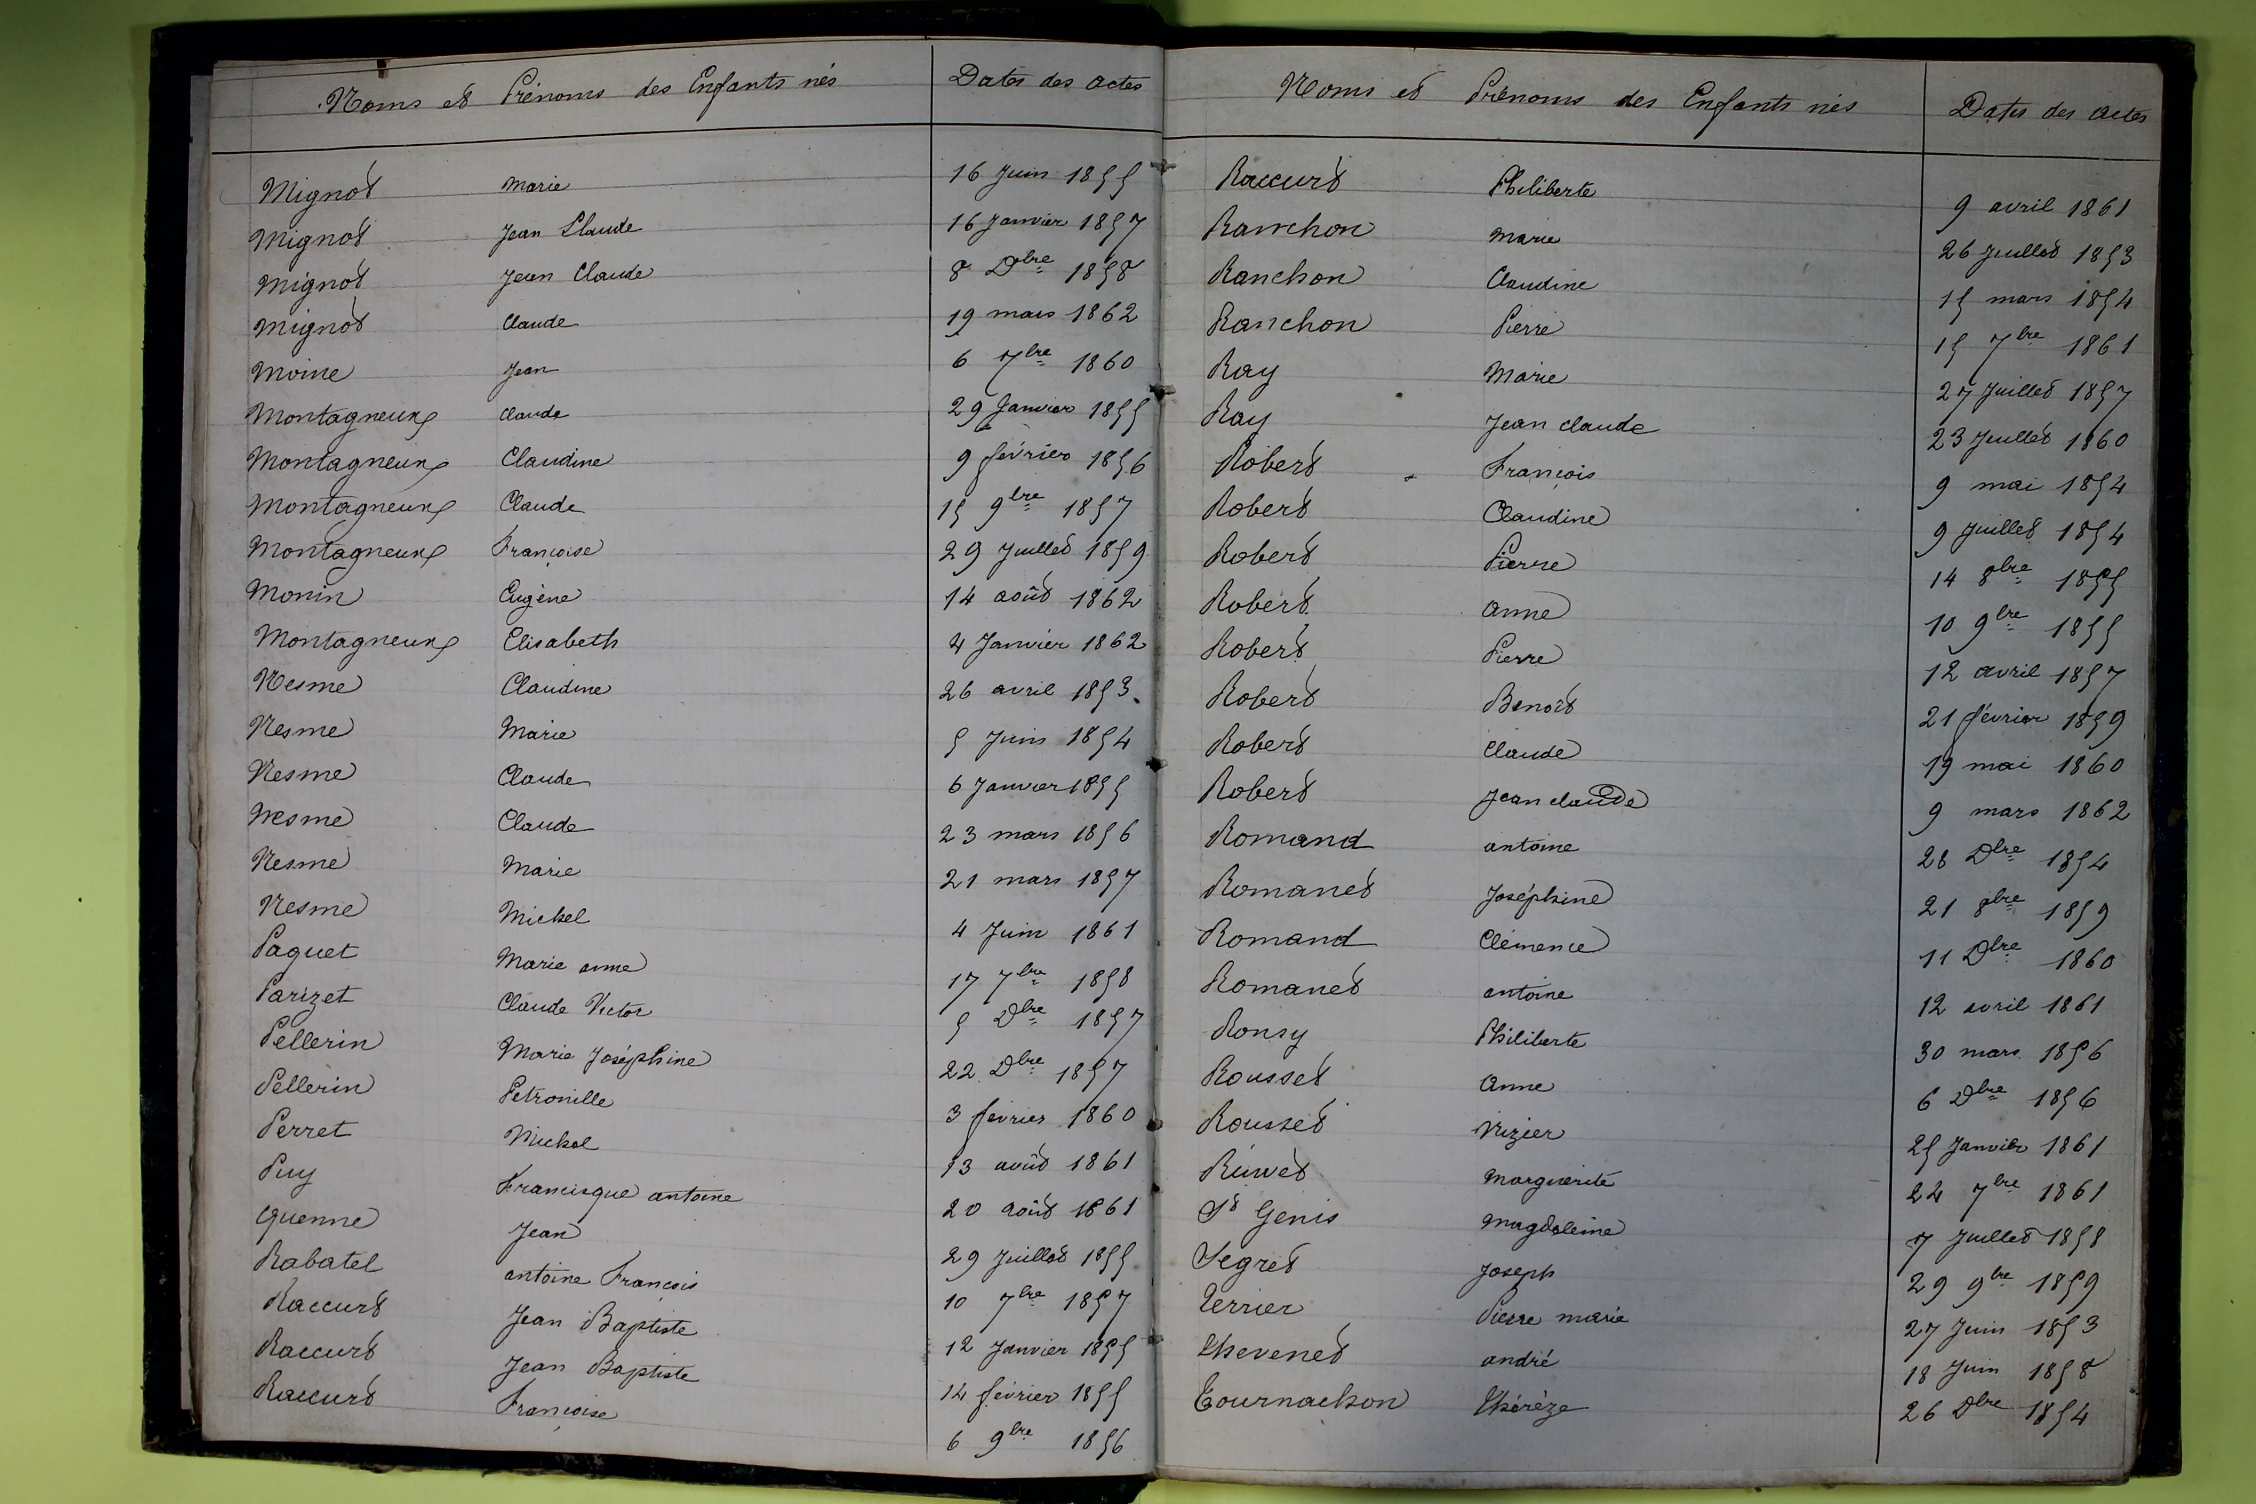 Noms et Prénoms des Enfants nés Dates des actes
Mignot Marie 16 Juin 1855
Mignot Jean Claude 16 Janvier 1857
Mignot Jean Claude 8 Dbre 1858
Mignot Claude 19 mars 1862
Moine Jean 6 7bre 1860
Montagneux Claude 29 Janvier 1855
Montagneux Claudine 9 février 1856
Montagneux Claude 15 9bre 1857
Montagneux Françoise 29 Juillet 1859
Monin Eugène 14 août 1862
Montagneux Elisabeth 4 Janvier 1862
Nesme Claudine 26 avril 1853
Nesme Marie 5 Juin 1854
Nesme Claude 6 Janvier 1855
Nesme Claude 23 mars 1856
Nesme Marie 21 mars 1857
Nesme Michel 4 Juin 1861
Paquet Marie anne 17 7bre 1858
Parizet Claude Victor 5 Dbre 1857
Pellerin Marie Joséphine 22 Dbre 1857
Pellerin Pétronille 3 février 1860
Perret Michel 13 août 1861
Puy Francisque antoine 20 août 1861
Quenne Jean 29 Juillet 1855
Rabatel antoine François 10 7bre 1857
Raccurt Jean Baptiste 12 Janvier 1855
Raccurt Jean Baptiste 14 février 1855
Raccurt Françoise 6 9bre 1856
Noms et Prénoms des Enfants nés Dates des actes
Raccurt Philiberte 9 avril 1861
Ranchon Marie 26 Juillet 1853
Ranchon Claudine 15 mars 1854
Ranchon Pierre 15 7bre 1861
Ray Marie 27 Juillet 1857
Ray Jean claude 23 Juillet 1860
Robert François 9 mai 1854
Robert Claudine 9 Juillet 1854
Robert Pierre 14 8bre 1855
Robert anne 10 9bre 1855
Robert Pierre 12 avril 1857
Robert Benoît 21 février 1859
Robert Claude 19 mai 1860
Robert Jean claude 9 mars 1862
Romand antoine 28 Dbre 1854
Romanet Joséphine 21 8bre 1859
Romand Clémence 11 Dbre 1860
Romanet antoine 12 avril 1861
Ronsy Philiberte 30 mars 1856
Rousset Anne 6 Dbre 1856
Rousset Vizier 25 Janvier 1861
Marguerite 24 7bre 1861
St Genis Magdeleine 7 Juillet 1858
Segret Joseph 29 9bre 1859
Terrier Pierre marie 27 Juin 1853
Thevenet andré 18 Juin 1858
Tournachon Thérèze 26 Dbre 1854